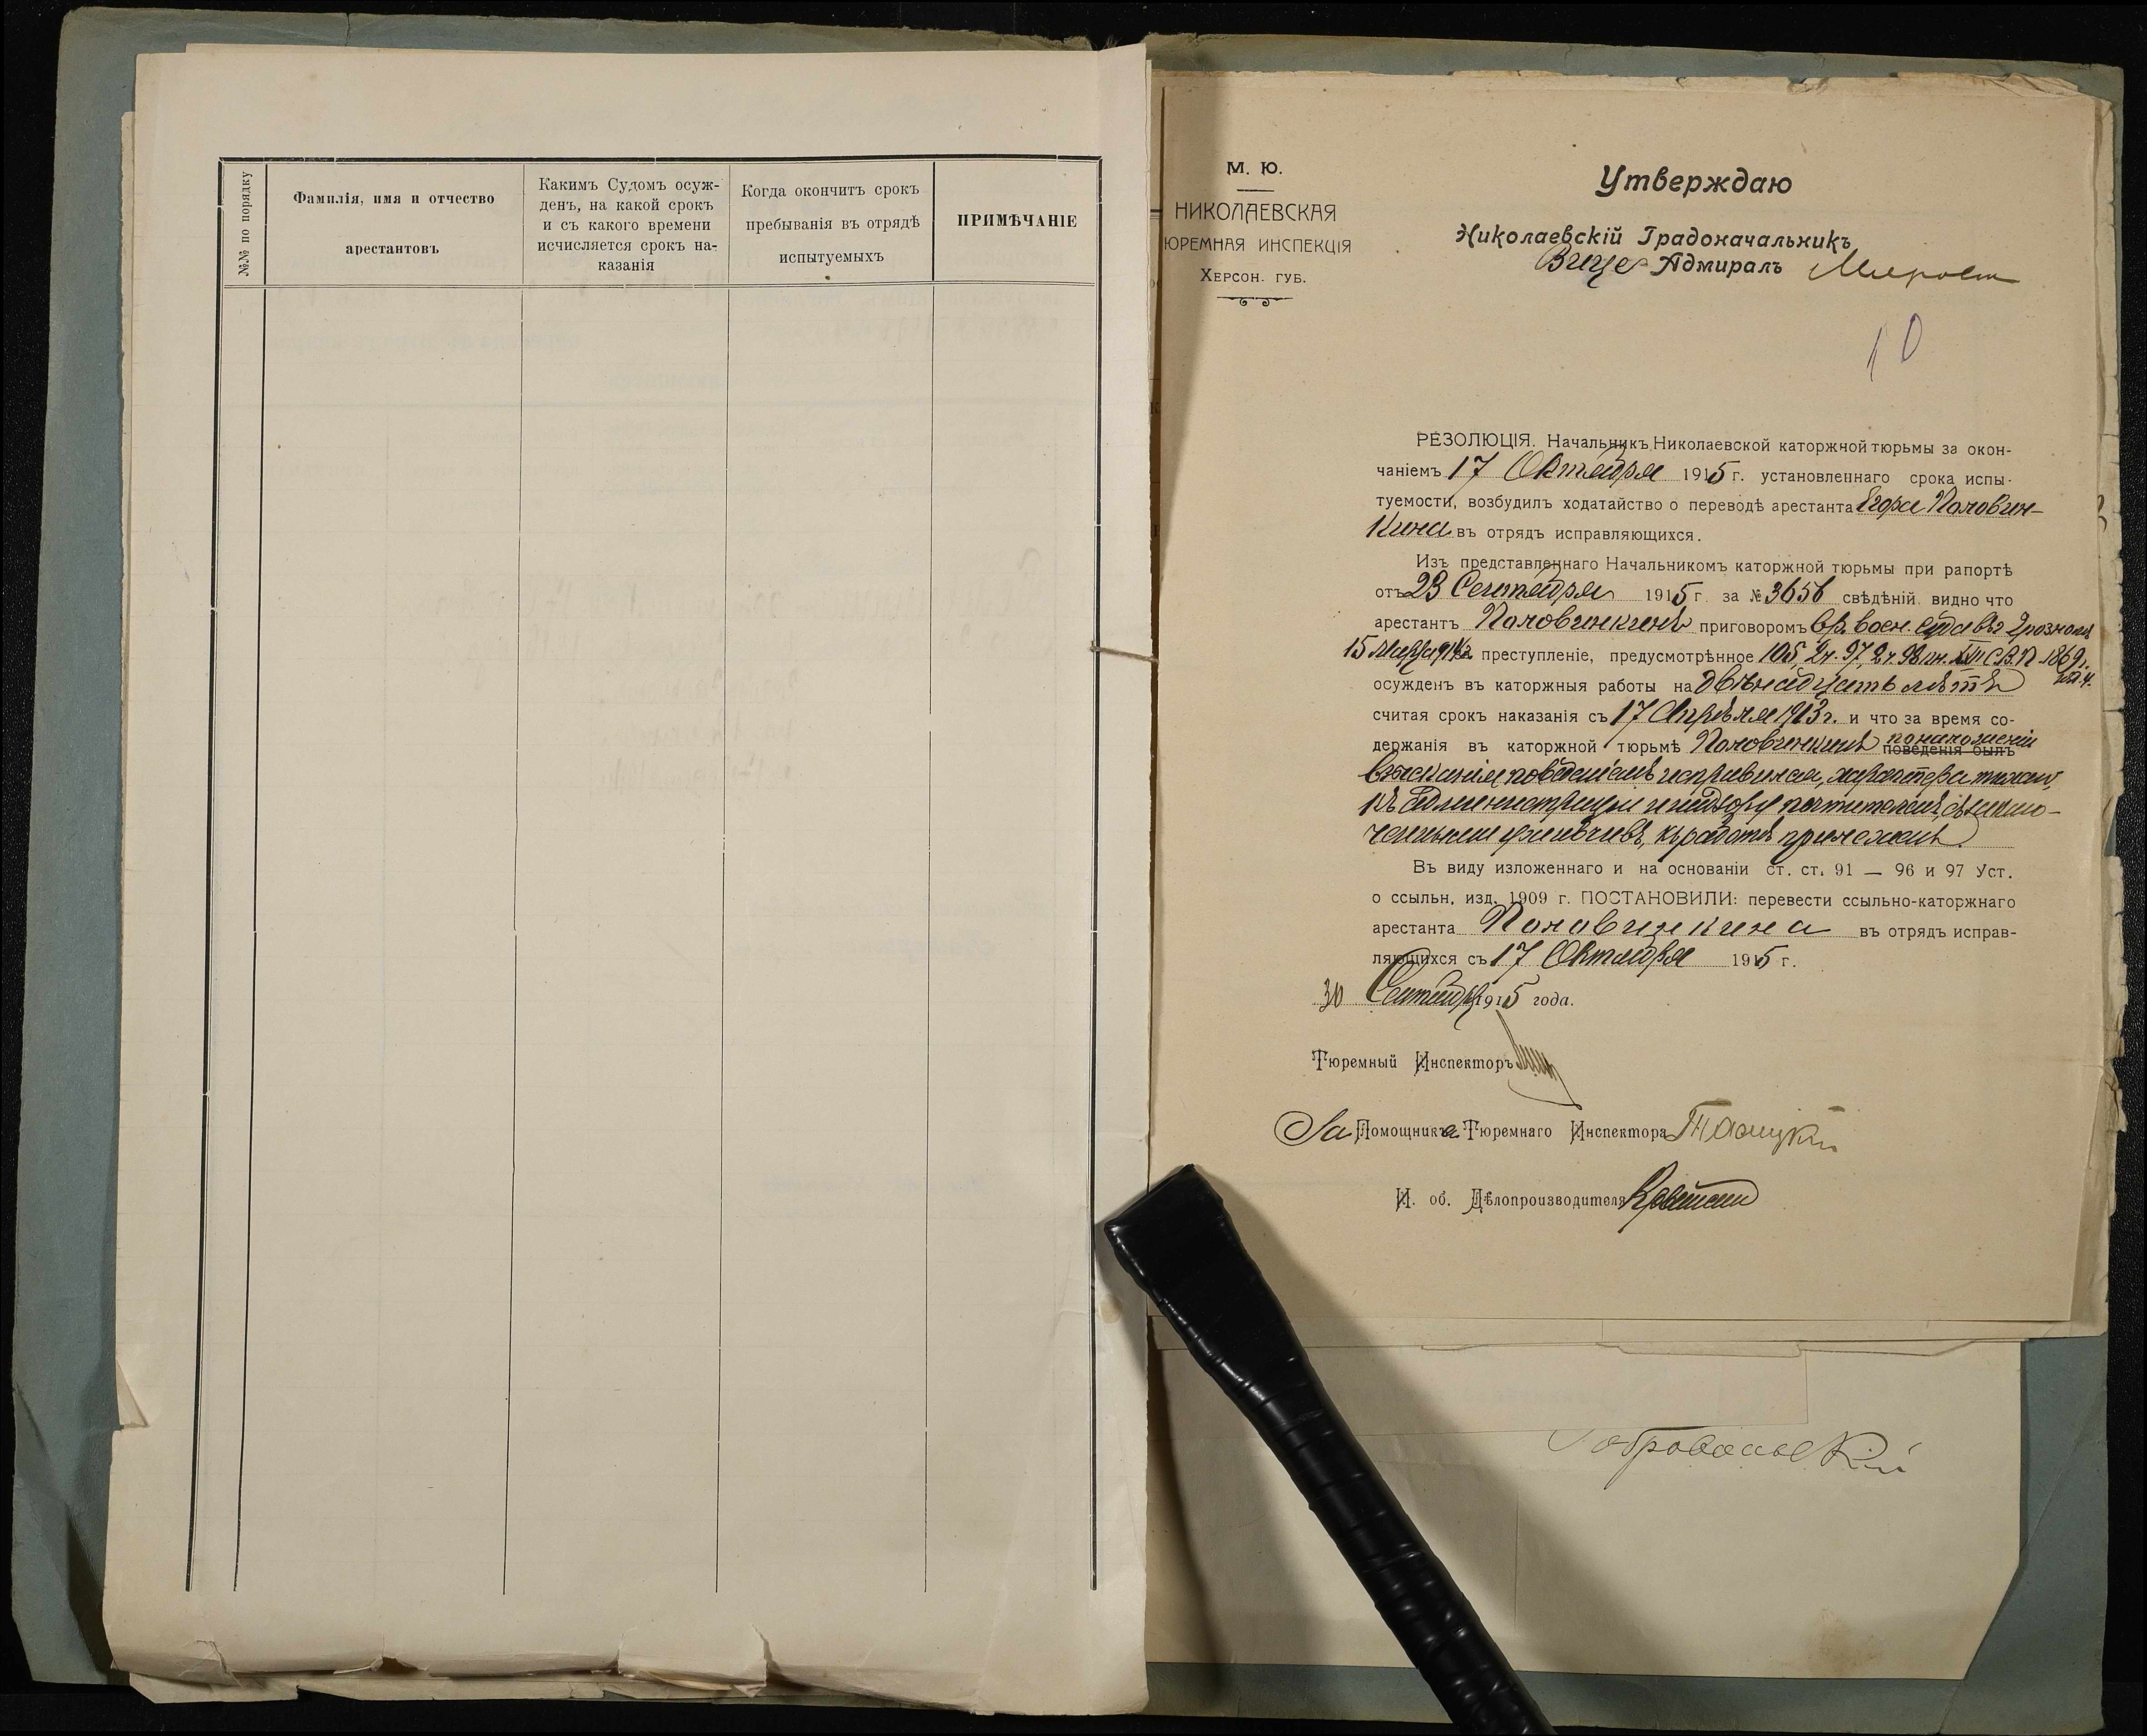 №№ по порядку
Фамилія, имя и отчество
арестантовъ
Какимъ Судомъ осуж-
денъ, на какой срокъ
и съ какого времени
исчисляется срокъ на-
казанія
Когда окончитъ срокъ
пребыванія въ отрядѣ
испытуемыхъ
ПРИМѢЧАНІЕ
М. Ю.
НИКОЛАЕВСКАЯ
ЮРЕМНАЯ ИНСПЕКЦІЯ
ХЕРСОН. ГУБ.
Утверждаю
Николаевскій Градоначальникъ
Вице-Адмиралъ
10
РЕЗОЛЮЦІЯ. Начальникъ Николаевской каторжной тюрьмы за окон-
чаніемъ 17 Октября 1915 г. установленнаго срока испы-
туемости, возбудилъ ходатайство о переводѣ арестанта Егора Половин-
кина въ отрядъ исправляющихся.
Изъ представленнаго Начальникомъ каторжной тюрьмы при рапортѣ
отъ 23 Сентября 1915 г. за № 3656 свѣдѣній, видно что
арестантъ Половинкинъ приговоромъ Вр. воен. суда въ г. Грозномъ
15 Марта 1913 за преступленіе, предусмотрѣнное 105, 2 ч. 97, 2 ч. 98 ст. XXII С.В.П. 1869 г.
изд. 4.
осужденъ въ каторжныя работы на двѣнадцать лѣтъ
считая срокъ наказанія съ 17 Апрѣля 1913 г. и что за время со-
держанія въ каторжной тюрьмѣ Половинкинъ поведенія былъ по наложеніи
взысканія поведеніемъ исправился, характера тихаго,
къ администраціи и надзору почтителенъ, съ заклю-
ченными уживчивъ, къ работѣ прилеженъ.
Въ виду изложеннаго и на основаніи ст. ст. 91 — 96 и 97 Уст.
о ссыльн, изд. 1909 г. ПОСТАНОВИЛИ: перевести ссыльно-каторжнаго
арестанта Половинкина въ отрядъ исправ-
ляющихся съ 17 Октября 1915 г.
30 Сентября 1915 года.
Тюремный Инспекторъ
За Помощника Тюремнаго Инспектора
И. об. Дѣлопроизводителя